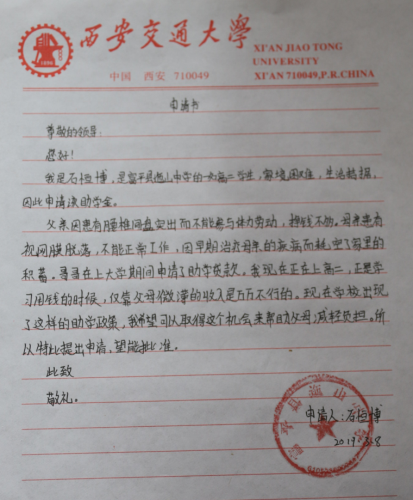 西安交通大學
XI'AN JIAO TONG
UNIVERSITY
中国 西安 710049
XI'AN 710049,P.R.CHINA
1896
申请书
尊敬的领导:
您好!
我是石恒博,是富平县迤山中学的一名高二学生,家境困难,生活拮据,
因此申请该助学金。
父亲因患有腰椎间盘突出而不能参与体力劳动,挣钱不多。母亲患有
视网膜脱落,不能正常工作,因早期治疗母亲的疾病而耗空了家里的
积蓄。哥哥在上大学期间申请了助学贷款。我现在正在上高二,正要学
习用钱的时候,仅靠父母微薄的收入是万万不行的。现在学校出现
了这样的助学政策,我希望可以取得这个机会来帮助父母减轻负担。所
以特此提出申请,望能批准。
此致
敬礼。
申请人:石恒博
2019.
富平县迤山中学